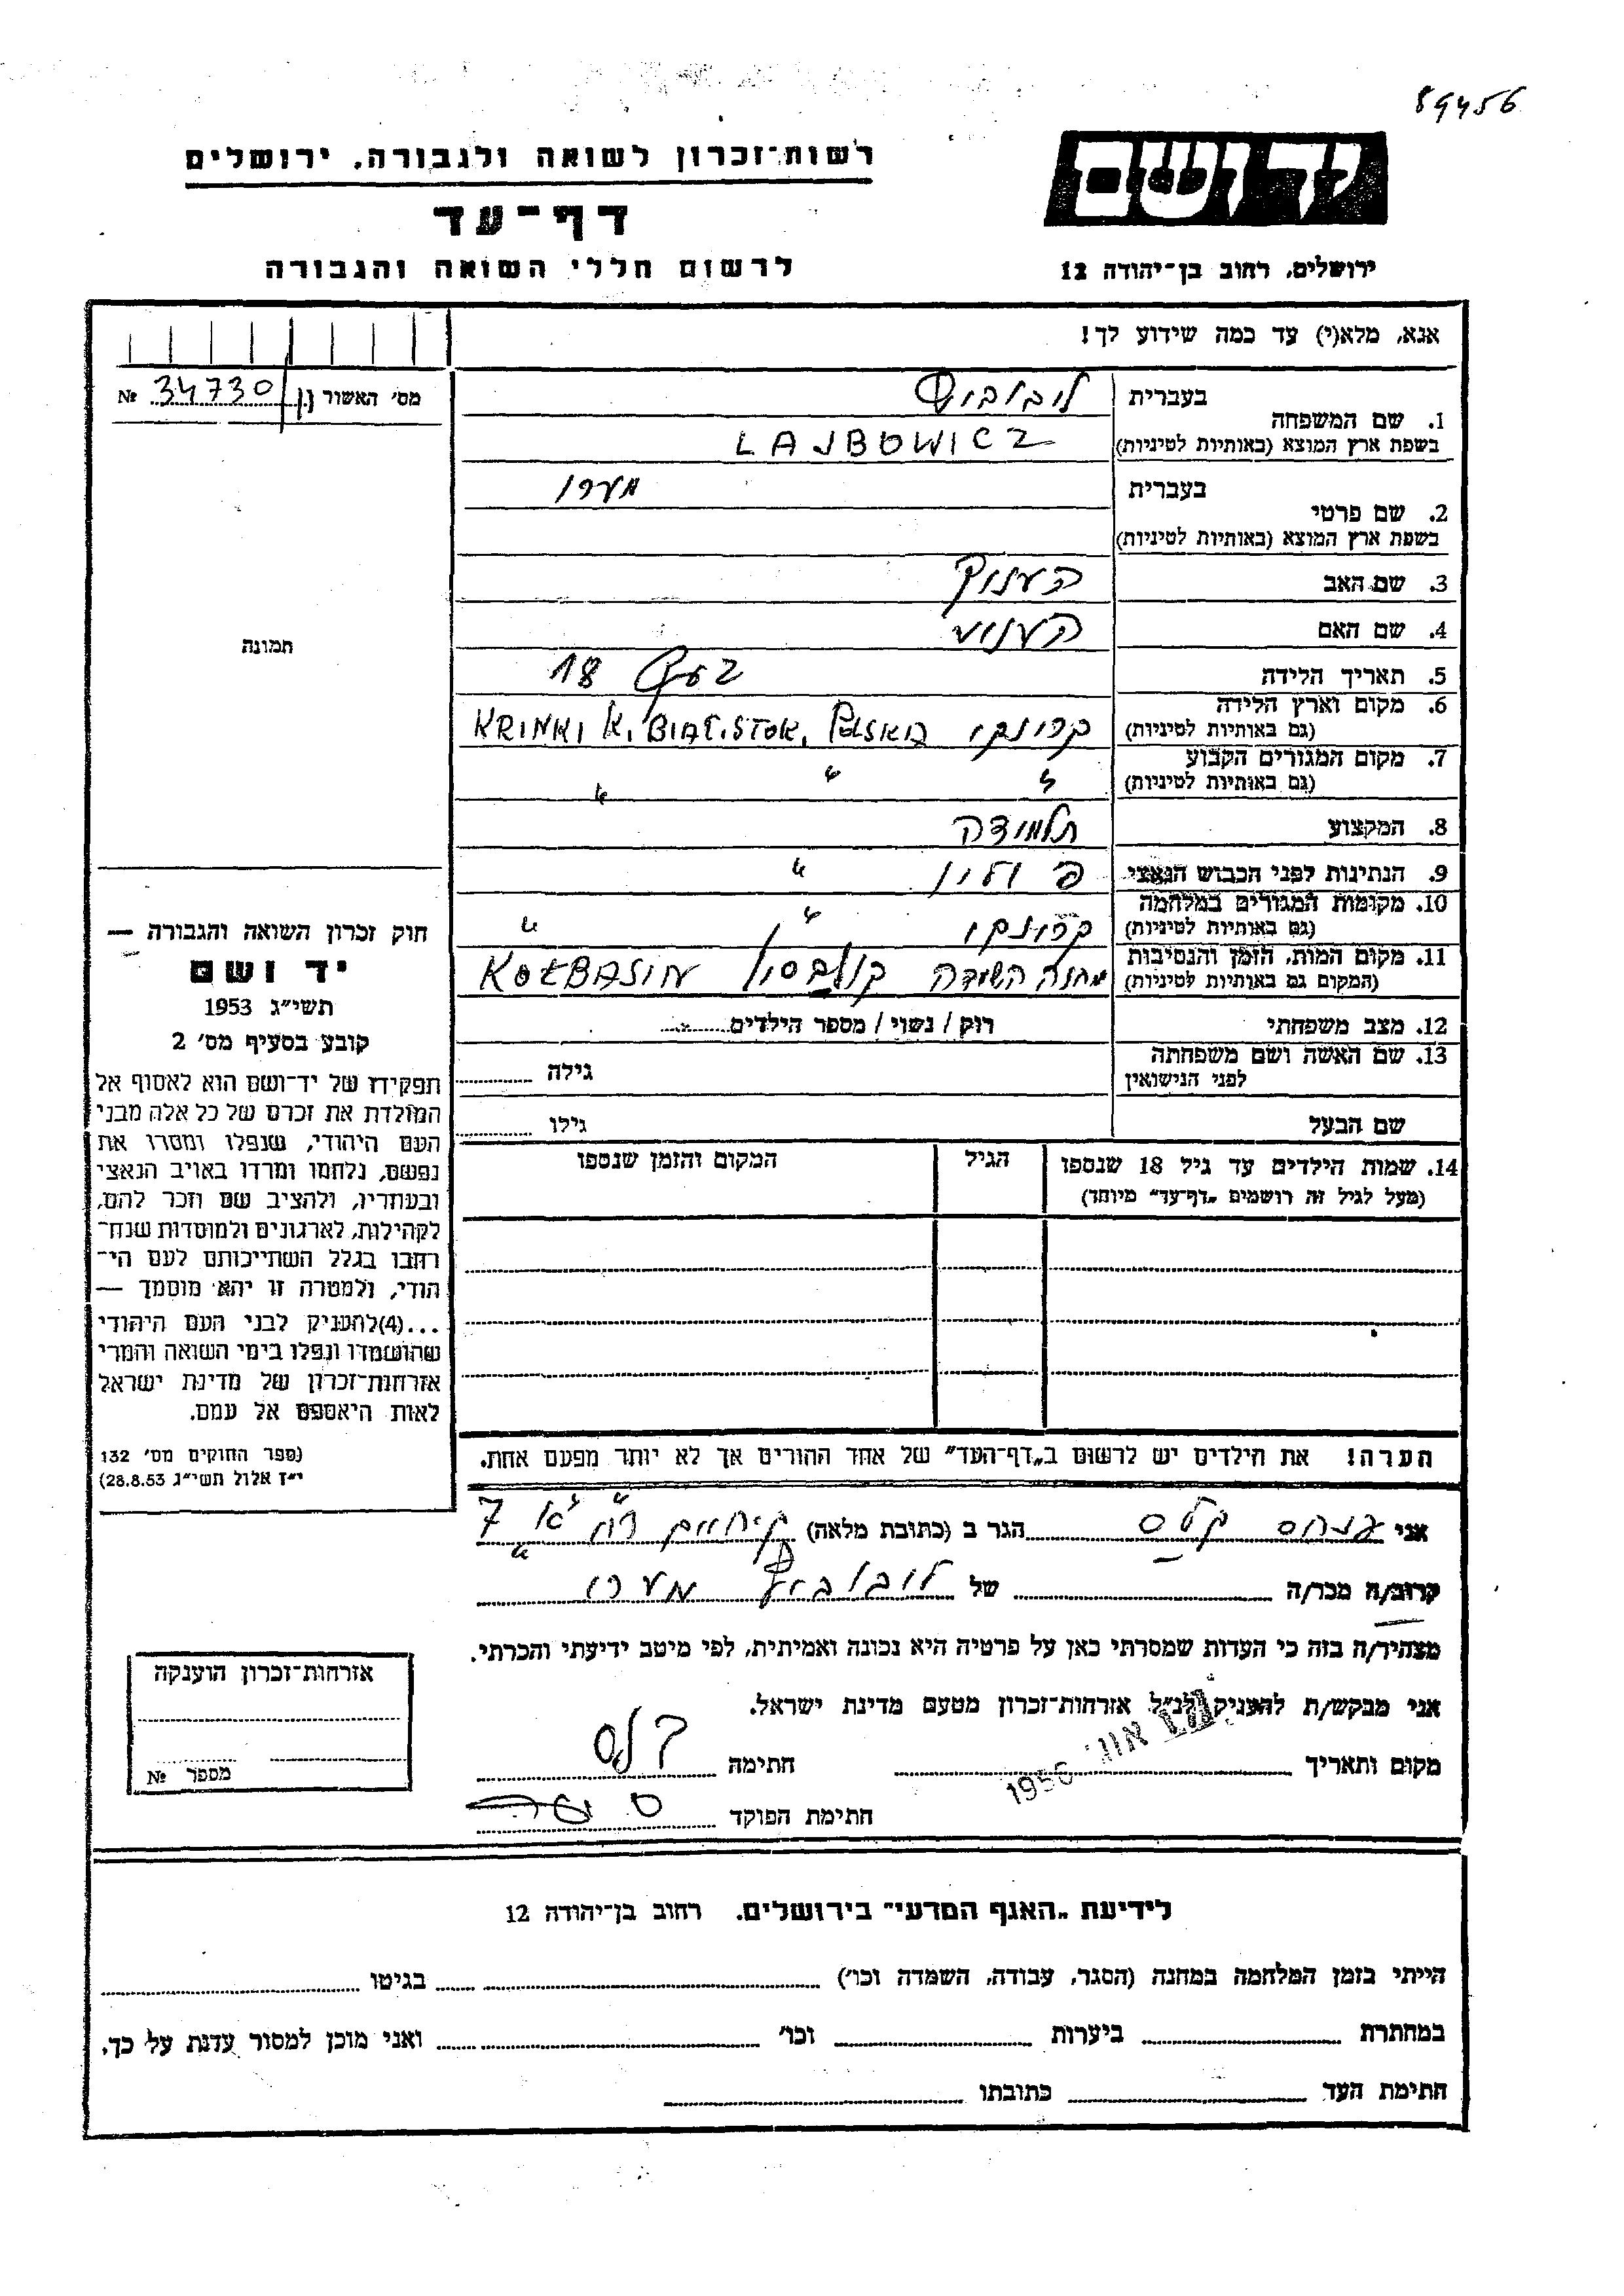 89456
יד ושם
רשות־זכרון לשואה ולגבורה, ירושלים
דף־עד
לרשום חללי השואה והגבורה
ירושלים, רחוב בן־יהודה 12
אנא, מלא(י) עד כמה שידוע לך!
מס' האשור 34730 №
1. שם המשפחה
בעברית
בשפת ארץ המוצא (באותיות לטיניות) LAJBOWICZ
2. שם פרטי
בעברית
בשפת ארץ המוצא (באותיות לטיניות)
3. שם האב
4. שם האם
5. תאריך הלידה 18
6. מקום וארץ הלידה
(גם באותיות לטיניות) קרונקי KRINKI K. BIAŁISTOK, Polska
7. מקום המגורים הקבוע
(גם באותיות לטיניות) " " "
8. המקצוע תלמידה
9. הנתינות לפני הכבוש הנאצי פולין "
10. מקומות המגורים במלחמה
(גם באותיות לטיניות) קרונקי " "
11. מקום המות, הזמן והנסיבות
(המקום גם באותיות לטיניות) מחנה השמדה KOŁBASIN
12. מצב משפחתי רוק / נשוי / מספר הילדים
13. שם האשה ושם משפחתה
לפני הנישואין גילה
שם הבעל גילו
14. שמות הילדים עד גיל 18 שנספו הגיל המקום והזמן שנספו
(מעל לגיל זה רושמים „דף־עד" מיוחד)
הערה! את הילדים יש לרשום ב„דף־העד" של אחד ההורים אך לא יותר מפעם אחת.
תמונה
חוק זכרון השואה והגבורה —
יד ושם
תשי"ג 1953
קובע בסעיף מס' 2
תפקידו של יד־ושם הוא לאסוף אל
המולדת את זכרם של כל אלה מבני
העם היהודי, שנפלו ומסרו את
נפשם, נלחמו ומרדו באויב הנאצי
ובעוזריו, ולהציב שם וזכר להם,
לקהילות, לארגונים ולמוסדות שנח־
רחבו בגלל השתייכותם לעם הי־
הודי, ולמטרה זו יהא מוסמך —
...(4)להעניק לבני העם היהודי
שהושמדו ונפלו בימי השואה והמרי
אזרחות־זכרון של מדינת ישראל
לאות היאספם אל עמם.
(ספר החוקים מס' 132
י"ז אלול תשי"ג 28.8.53)
אני הגר ב (כתובת מלאה) 7
קרוב/ה מכר/ה של
מצהיר/ה בזה כי העדות שמסרתי כאן על פרטיה היא נכונה ואמיתית, לפי מיטב ידיעתי והכרתי.
אני מבקש/ת להעניק לנ"ל אזרחות־זכרון מטעם מדינת ישראל.
מקום ותאריך אוג' 1956 חתימה
חתימת הפוקד
אזרחות־זכרון הוענקה
מספר №
לידיעת „האגף המדעי" בירושלים. רחוב בן־יהודה 12
הייתי בזמן המלחמה במחנה (הסגר, עבודה, השמדה וכו') בגיטו
במחתרת ביערות וכו' ואני מוכן למסור עדות על כך.
חתימת העד כתובתו